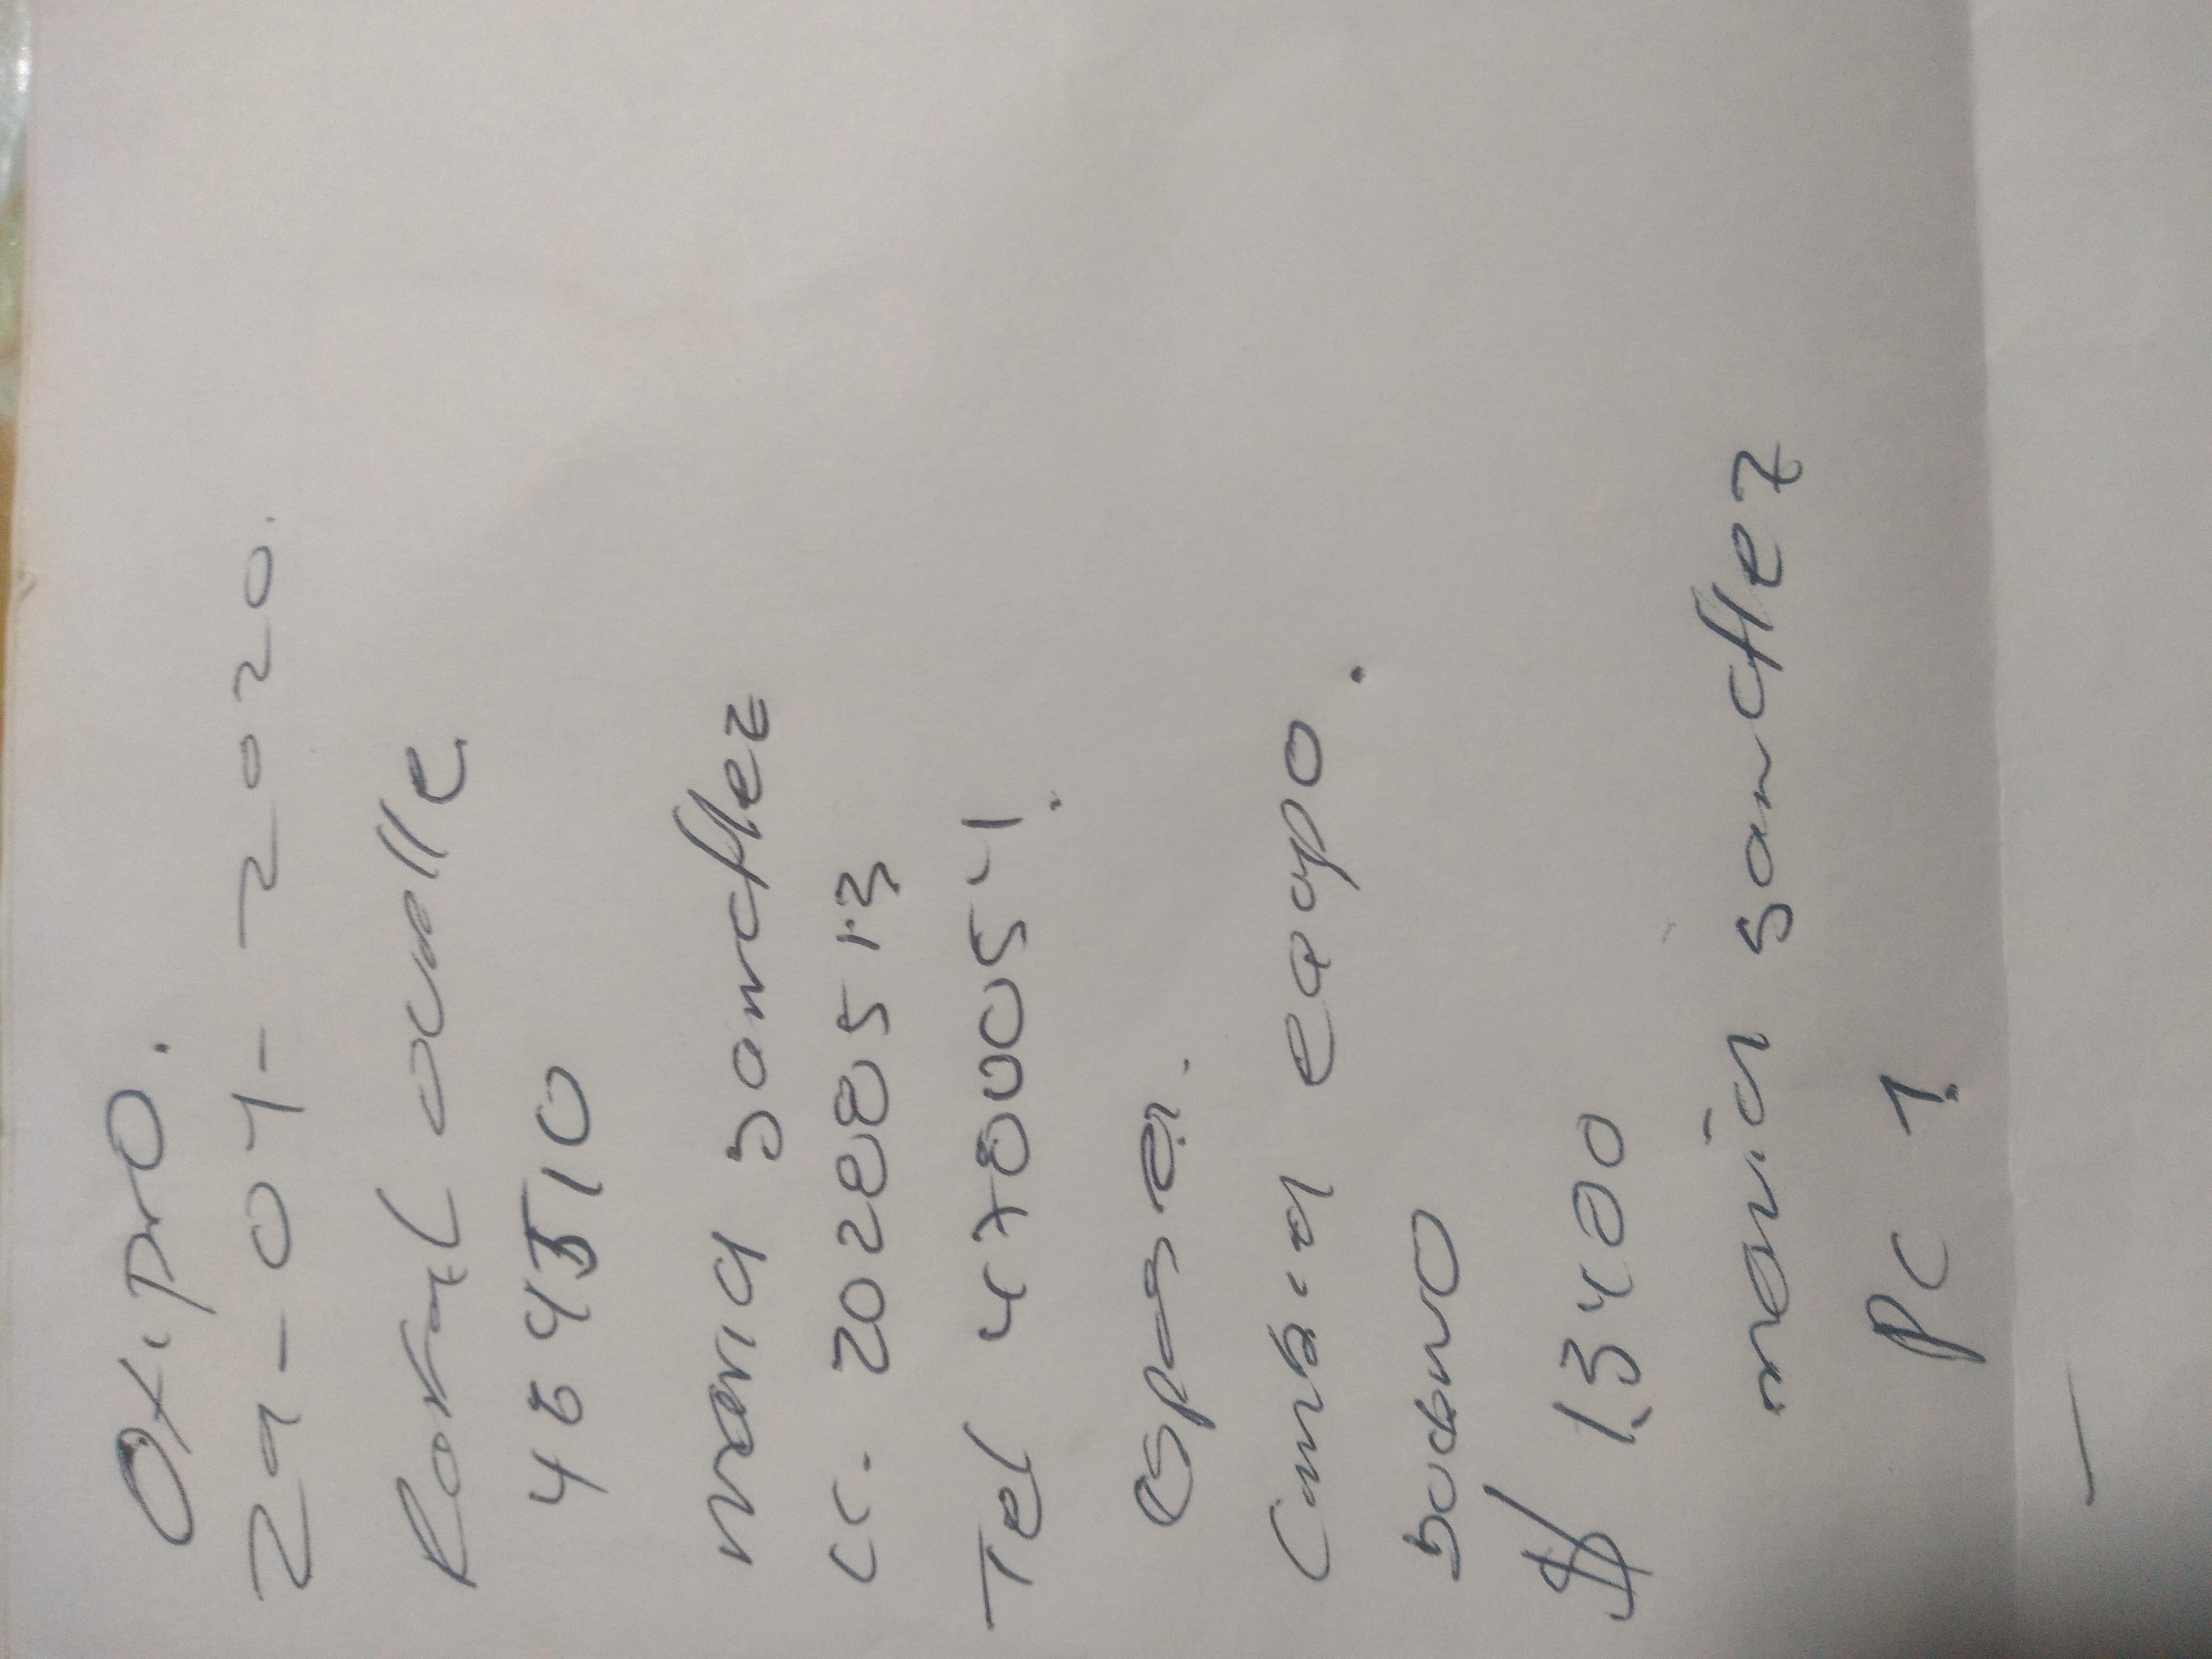 Oxipro.
29-07-2020.
Rafael ovalle
464510
maria sanchez
cc. 20288513
Tel 4780054
Esposa.
Cambia equipo.
bueno
$ 13400
maria sanchez
PC 1